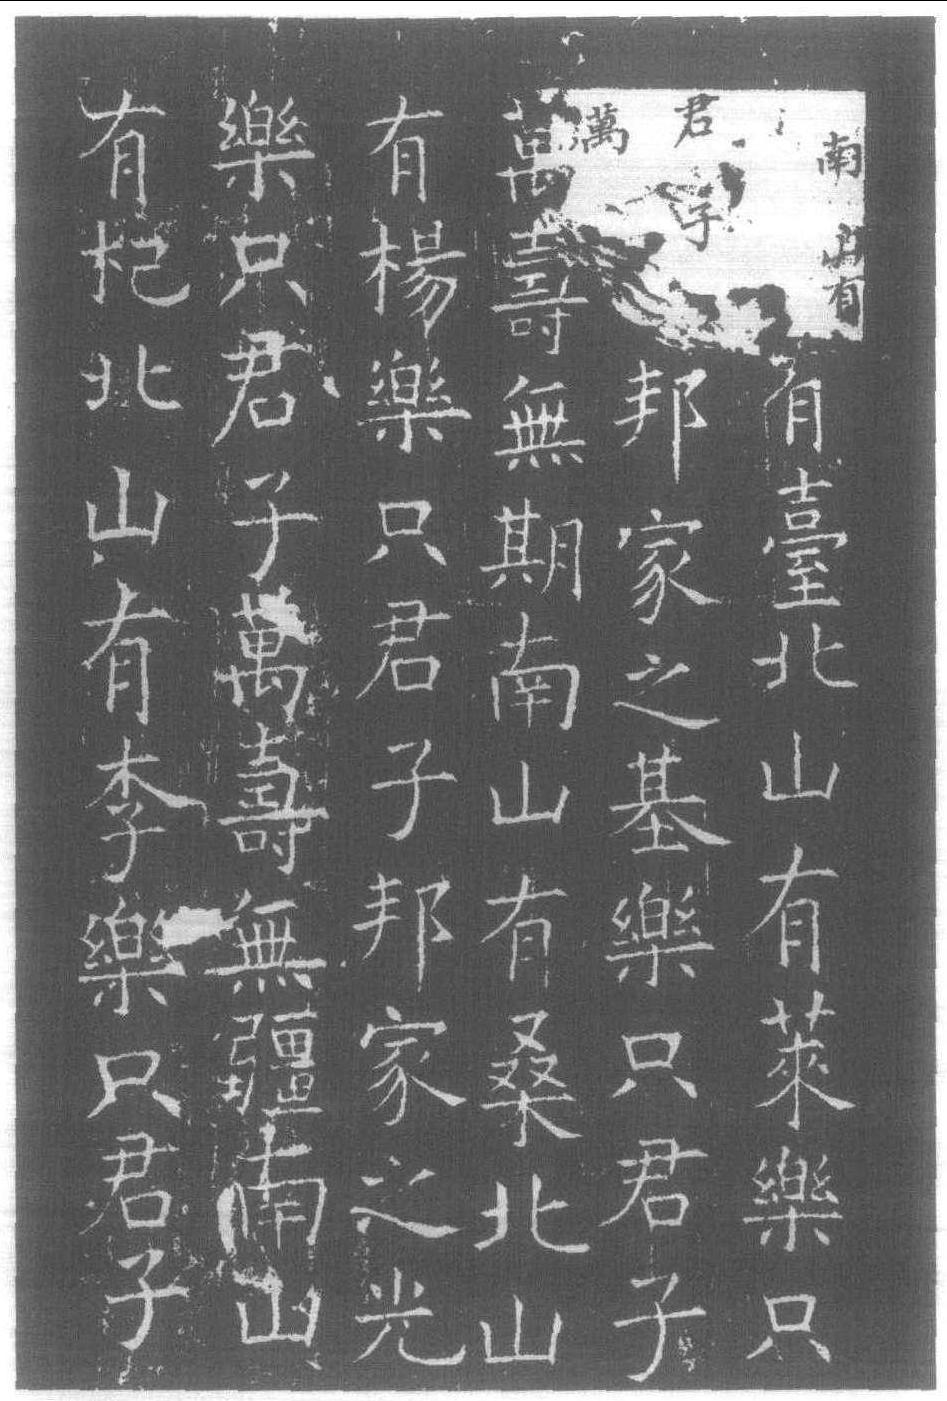 南山有有臺北山有萊樂只
君子邦家之基樂只君子
萬
萬壽無期南山有桑北山
有楊樂只君子邦家之光
樂只君子萬壽無疆南山
有杞北山有李樂只君子